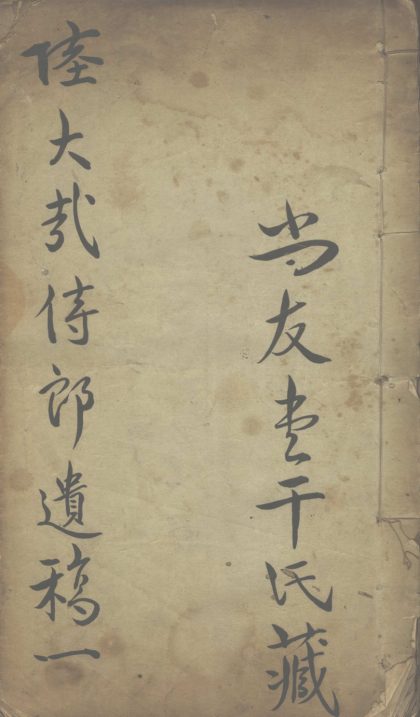 尚友堂干氏藏
陸大哉侍郎遺稿一